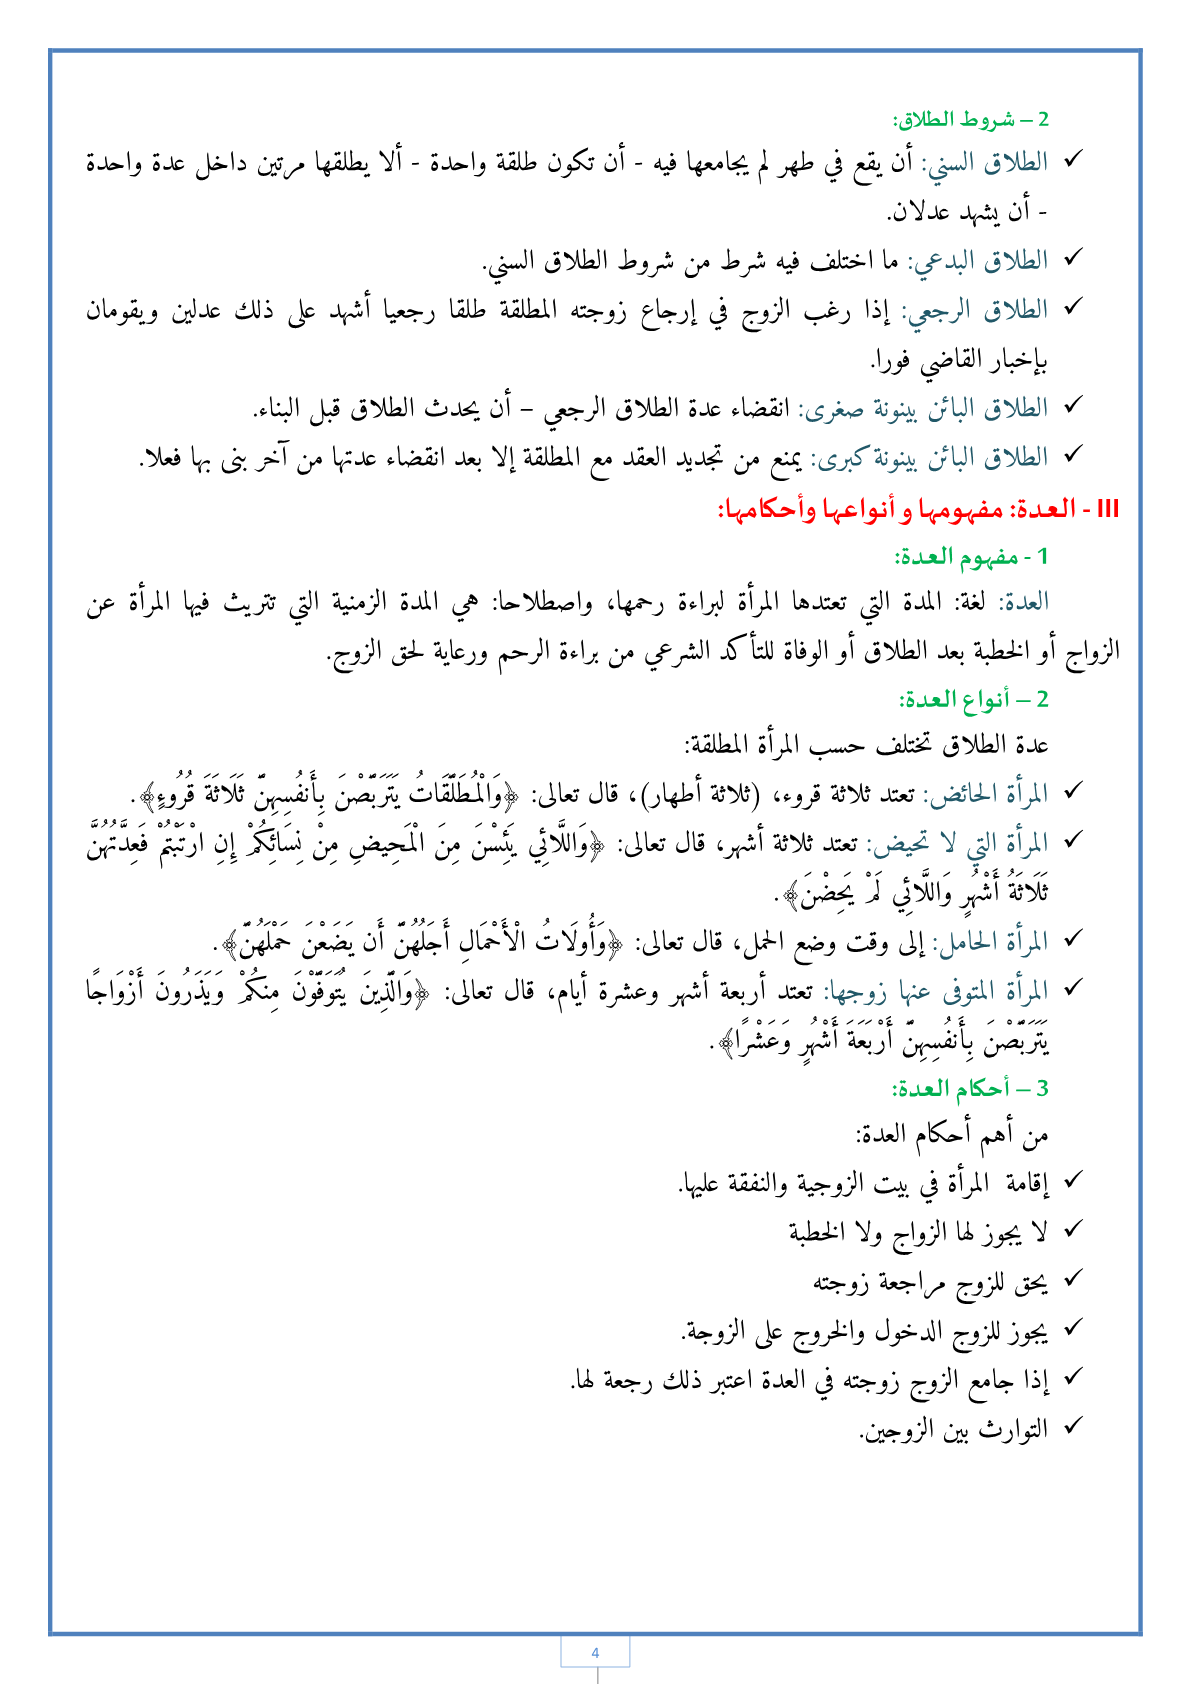 2 – شروط الطلاق:
✓ الطلاق السني: أن يقع في طهر لم يجامعها فيه - أن تكون طلقة واحدة - ألا يطلقها مرتين داخل عدة واحدة
- أن يشهد عدلان.
✓ الطلاق البدعي: ما اختلف فيه شرط من شروط الطلاق السني.
✓ الطلاق الرجعي: إذا رغب الزوج في إرجاع زوجته المطلقة طلقا رجعيا أشهد على ذلك عدلين ويقومان
بإخبار القاضي فورا.
✓ الطلاق البائن بينونة صغرى: انقضاء عدة الطلاق الرجعي – أن يحدث الطلاق قبل البناء.
✓ الطلاق البائن بينونة كبرى: يمنع من تجديد العقد مع المطلقة إلا بعد انقضاء عدتها من آخر بنى بها فعلا.
III - العدة: مفهومها و أنواعها وأحكامها:
1 - مفهوم العدة:
العدة: لغة: المدة التي تعتدها المرأة لبراءة رحمها، واصطلاحا: هي المدة الزمنية التي تتريث فيها المرأة عن
الزواج أو الخطبة بعد الطلاق أو الوفاة للتأكد الشرعي من براءة الرحم ورعاية لحق الزوج.
2 – أنواع العدة:
عدة الطلاق تختلف حسب المرأة المطلقة:
✓ المرأة الحائض: تعتد ثلاثة قروء، (ثلاثة أطهار)، قال تعالى: ﴿وَالْمُطَلَّقَاتُ يَتَرَبَّصْنَ بِأَنفُسِهِنَّ ثَلَاثَةَ قُرُوءٍ﴾.
✓ المرأة التي لا تحيض: تعتد ثلاثة أشهر، قال تعالى: ﴿وَاللَّائِي يَئِسْنَ مِنَ الْمَحِيضِ مِنْ نِسَائِكُمْ إِنِ ارْتَبْتُمْ فَعِدَّتُهُنَّ
ثَلَاثَةُ أَشْهُرٍ وَاللَّائِي لَمْ يَحِضْنَ﴾.
✓ المرأة الحامل: إلى وقت وضع الحمل، قال تعالى: ﴿وَأُولَاتُ الْأَحْمَالِ أَجَلُهُنَّ أَن يَضَعْنَ حَمْلَهُنَّ﴾.
✓ المرأة المتوفى عنها زوجها: تعتد أربعة أشهر وعشرة أيام، قال تعالى: ﴿وَالَّذِينَ يُتَوَفَّوْنَ مِنكُمْ وَيَذَرُونَ أَزْوَاجًا
يَتَرَبَّصْنَ بِأَنفُسِهِنَّ أَرْبَعَةَ أَشْهُرٍ وَعَشْرًا﴾.
3 – أحكام العدة:
من أهم أحكام العدة:
✓ إقامة المرأة في بيت الزوجية والنفقة عليها.
✓ لا يجوز لها الزواج ولا الخطبة
✓ يحق للزوج مراجعة زوجته
✓ يجوز للزوج الدخول والخروج على الزوجة.
✓ إذا جامع الزوج زوجته في العدة اعتبر ذلك رجعة لها.
✓ التوارث بين الزوجين.
4